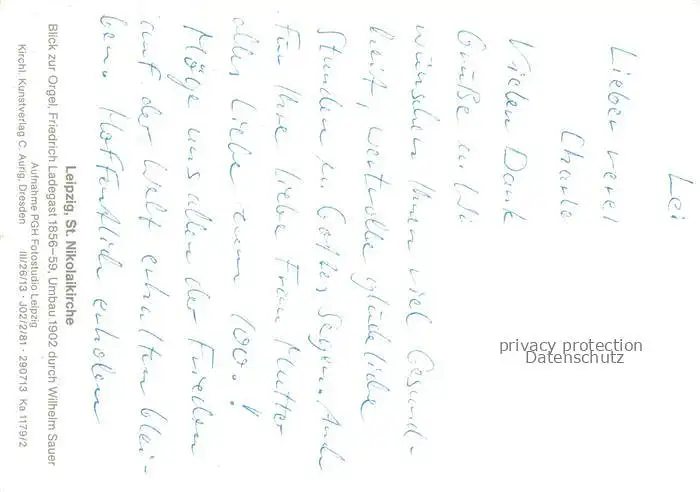 Lei
Lieber verel
Charlo
Vielen Dank
Grüße u. Wi
wünschen Ihnen viel Gesund-
heit, wertvolle glückliche
Stunden zu Gottes Segen. Auch
für Ihre liebe Frau Mutter
alles Liebe zum 100.!
Möge uns allen der Frieden
auf der Welt erhalten blei-
ben. Hoffentlich erholen
Leipzig, St. Nikolaikirche
Blick zur Orgel, Friedrich Ladegast 1856–59, Umbau 1902 durch Wilhelm Sauer
Aufnahme PGH Fotostudio Leipzig
Kirchl. Kunstverlag C. Aurig, Dresden III/26/13 · J02/2/81 · 290713 Ka 1179/2
privacy protection
Datenschutz